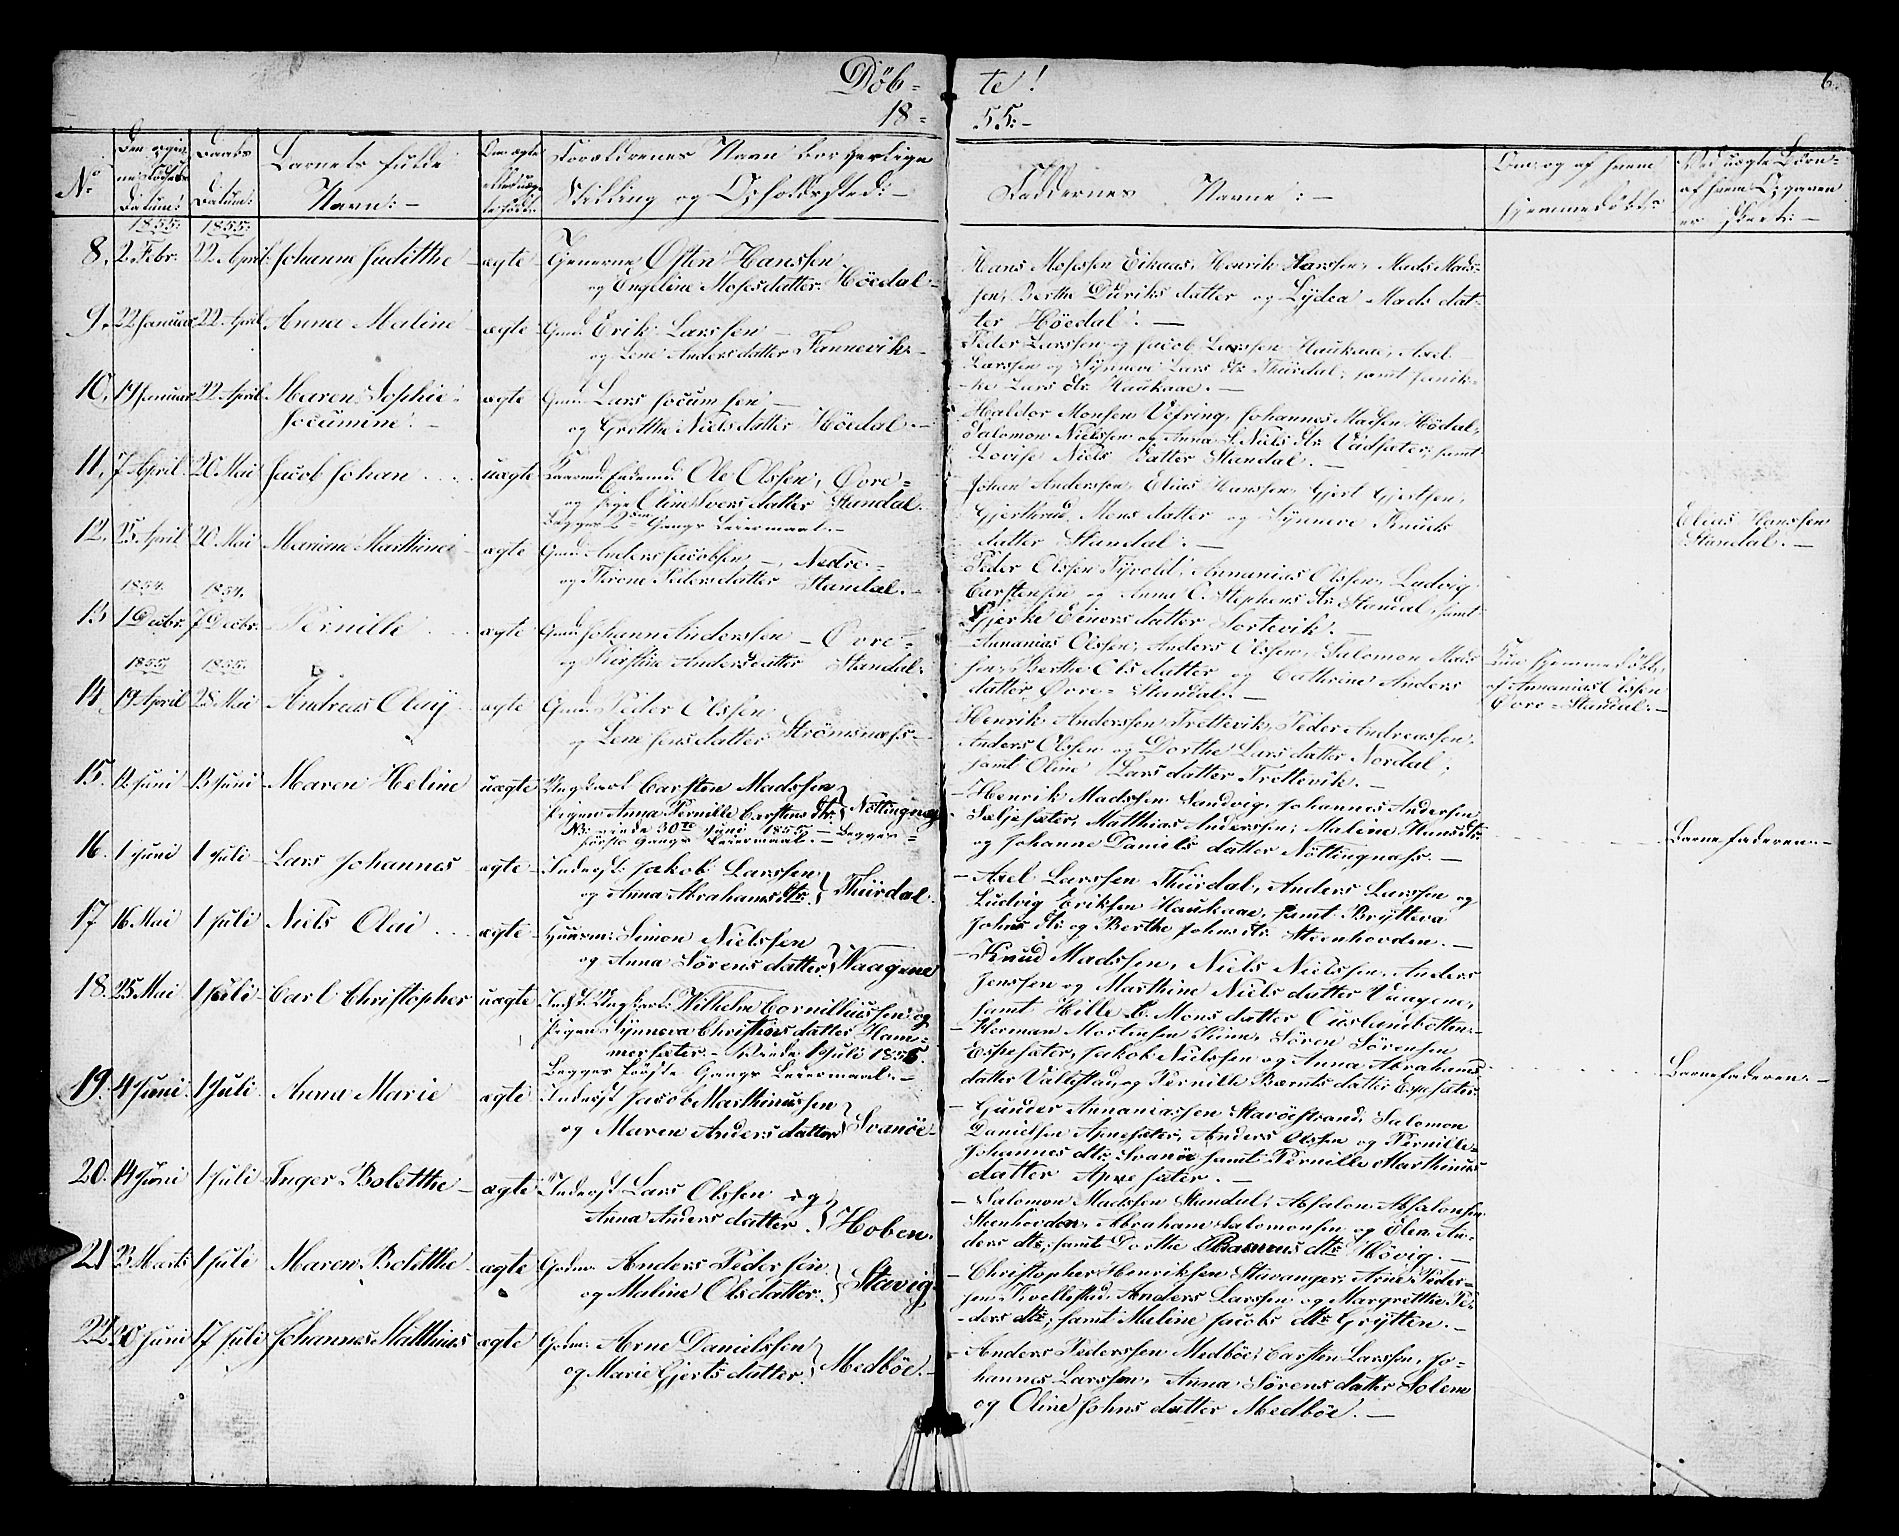 Döb= te!
6.
18= 55:-
No
Den egen=
ne Födsels
Datum:
Daabs
Datum:
Barnets fulde
Navn:-
Om ægte
eller uæg=
te födt:
Forældrenes Navn borgerlige
Stilling og Opholdssted:-
Faddernes Navne:-
Om og af hvem
hjemmedöbt:
Ved uægte Börn=
af hvem Opgaven
er skeet:-
1855: 1855:
8. 2. Febr. 22 April Johanne Judithe ægte Tjenerne Östen Hanssen
og Engeline Mosesdatter. Höedal
Hans Mosessen Eikaas, Henrik Harssen, Mads Mads=
sen, Berthe Diriks datter og Lydea Mads dat=
ter Höedal.-
9. 22 Januar 22 April Anna Maline ægte Gmd. Erik Larssen
og Lene Andersdatter Fannevik
Peder Larssen og Jacob Larssen Haukaae, Axel
Larssen og Synneve Lars dtr Thürdal, samt
Lars dtr Haukaae.-
10. 19 Januar 22 April Maren Sophie
Jocumine
ægte Gmd. Lars Jocumsen
og Grethe Nielsdatter Höedal
Haldor Monsen Vefring, Johannes Madsen Hödal,
Salomon Nielssen og Anna S. Niels dtr Vadsæter, samt
Lovise Niels datter Standal.-
11. 7 April 20 Mai Jacob Johan uægte Enkemd. Ole Olssen, Övre=
og Pige Oline Iversdatter Standal.
Begges 2den Gangs Leiermaal.-
Johan Anderssen, Elias Hanssen, Gjert Gjertsen,
Gjerthrud Mons datter og Synneve Knuds
datter Standal.-
Elias Hanssen
Standal.-
12. 25 April 20 Mai Mariane Marthine ægte Gmd. Anders Jacobsen, Nedre=
og Throne Pedersdatter Standal.-
Peder Olssen Tyvold, Annanias Olssen, Ludvig
Carstensen og Anna C. Stephens dtr Standal, samt
Gjerke Einersdatter Sortevik.-
1854. 1854.
13 1 Decbr. 7 Decbr. Pernille ægte Gmd. Johan Anderssen - Övre=
og Kirstine Andersdatter Standal.
Annanias Olssen, Anders Olssen, Salomon Mads
sen, Berthe Ols datter og Cathrine Anders
datter Övre= Standal.-
hjemmedöbt
af Annanias Olssen
Övre=Standal.-
1855. 1855.
14. 19 April 28 Mai Andreas Olay ægte Gmd. Peder Olssen
og Lene Jensdatter Strömsnæss-
Henrik Anderssen Trettevik, Peder Andreassen,
Anders Olssen og Dorthe Lars datter Nordal;
samt Oline Lars datter Trettevik.-
15. 12 Juni 13 Juni Maren Heline uægte Ungkarl Carsten Madssen
Pigen Anna Pernille Carstens dtr. Nöttingnæs
viede 30te Juni 1855.- Begges
förste Gangs Leiermaal.-
Henrik Madssen Sandvig, Johannes Andersen
Seljesæter, Matthias Anderssen, Maline Hans dtr
og Johanne Daniels datter Nöttingnæss.-
Barnefaderen.-
16. 1 Juni 1 Juli Lars Johannes ægte Inderst. Jakob Larssen
og Anna Abrahams dtr. Thürdal.
Axel Larssen Thürdal, Anders Larssen og
Ludvig Eriksen Haukaae, samt Brytteva
Johns dtr og Berthe Johns dtr Steenhovden.-
17 16 Mai 1 Juli Niels Olai ægte Huusm: Simon Nielssen
og Anna Sörensdatter Vaagene
Knud Madssen, Niels Nielssen, Anders
Jenssen og Marthine Niels datter Vaagene,
samt Hille C. Mons datter Ouslandbotten-
18. 25 Mai 1 Juli Carl Christopher uægte Inds. Ungkarl. Wilhelm Cornilliussen og
Pigen Synneva Christiansdatter Ham=
mersæter.- Viede 1 Juli 1855.
Begges Förste Gangs Leiermaal.-
Herman Mortensen Hinne, Sören Sörensen
Espesæter, Jakob Nielssen og Anna Abrahams
datter Vallestad, og Pernille Bernts datter Espesæter.
Barnefaderen.-
19. 4 Juni 1 Juli Anna Marie ægte Inderst Jacob Marthinussen
og Maren Andersdatter Svanöe
Gunder Annaniassen Stavöestrand, Salomon
Danielsen Apnesæter, Anders Olssen og Pernille
Johannes dtr. Svanöe samt Pernille Marthinus
datter Apnesæter.-
20. 14 Juni 1 Juli Inger Bolethe ægte Inderst Lars Olssen og
Anna Anders datter. Hoben.
Salomon Madssen Standal, Absalon Absalonsen
Steenhovden, Abraham Salomonsen og Elen An=
ders dtr; samt Dorthe Rasmus dtr Hövig.-
21 23 Marts 1 Juli Maren Bolethe ægte Godm. Anders Pedersen
og Maline Olsdatter. Stavig
Christopher Henriksen Stavanger, Arne Peder=
sen Kvellestad, Anders Larssen og Margrethe Pe=
ders dtr; samt Maline Jacobs dtr Grytten.-
22 20 Juni 17 Juli Johannes Matthias ægte Godm. Arne Danielssen
og Marie Gjertsdatter. Medböe.-
Anders Pederssen Medböe, Carsten Larssen, Jo=
hannes Larssen, Anna Sörens datter Solem
og Oline Johns datter Medböe.-